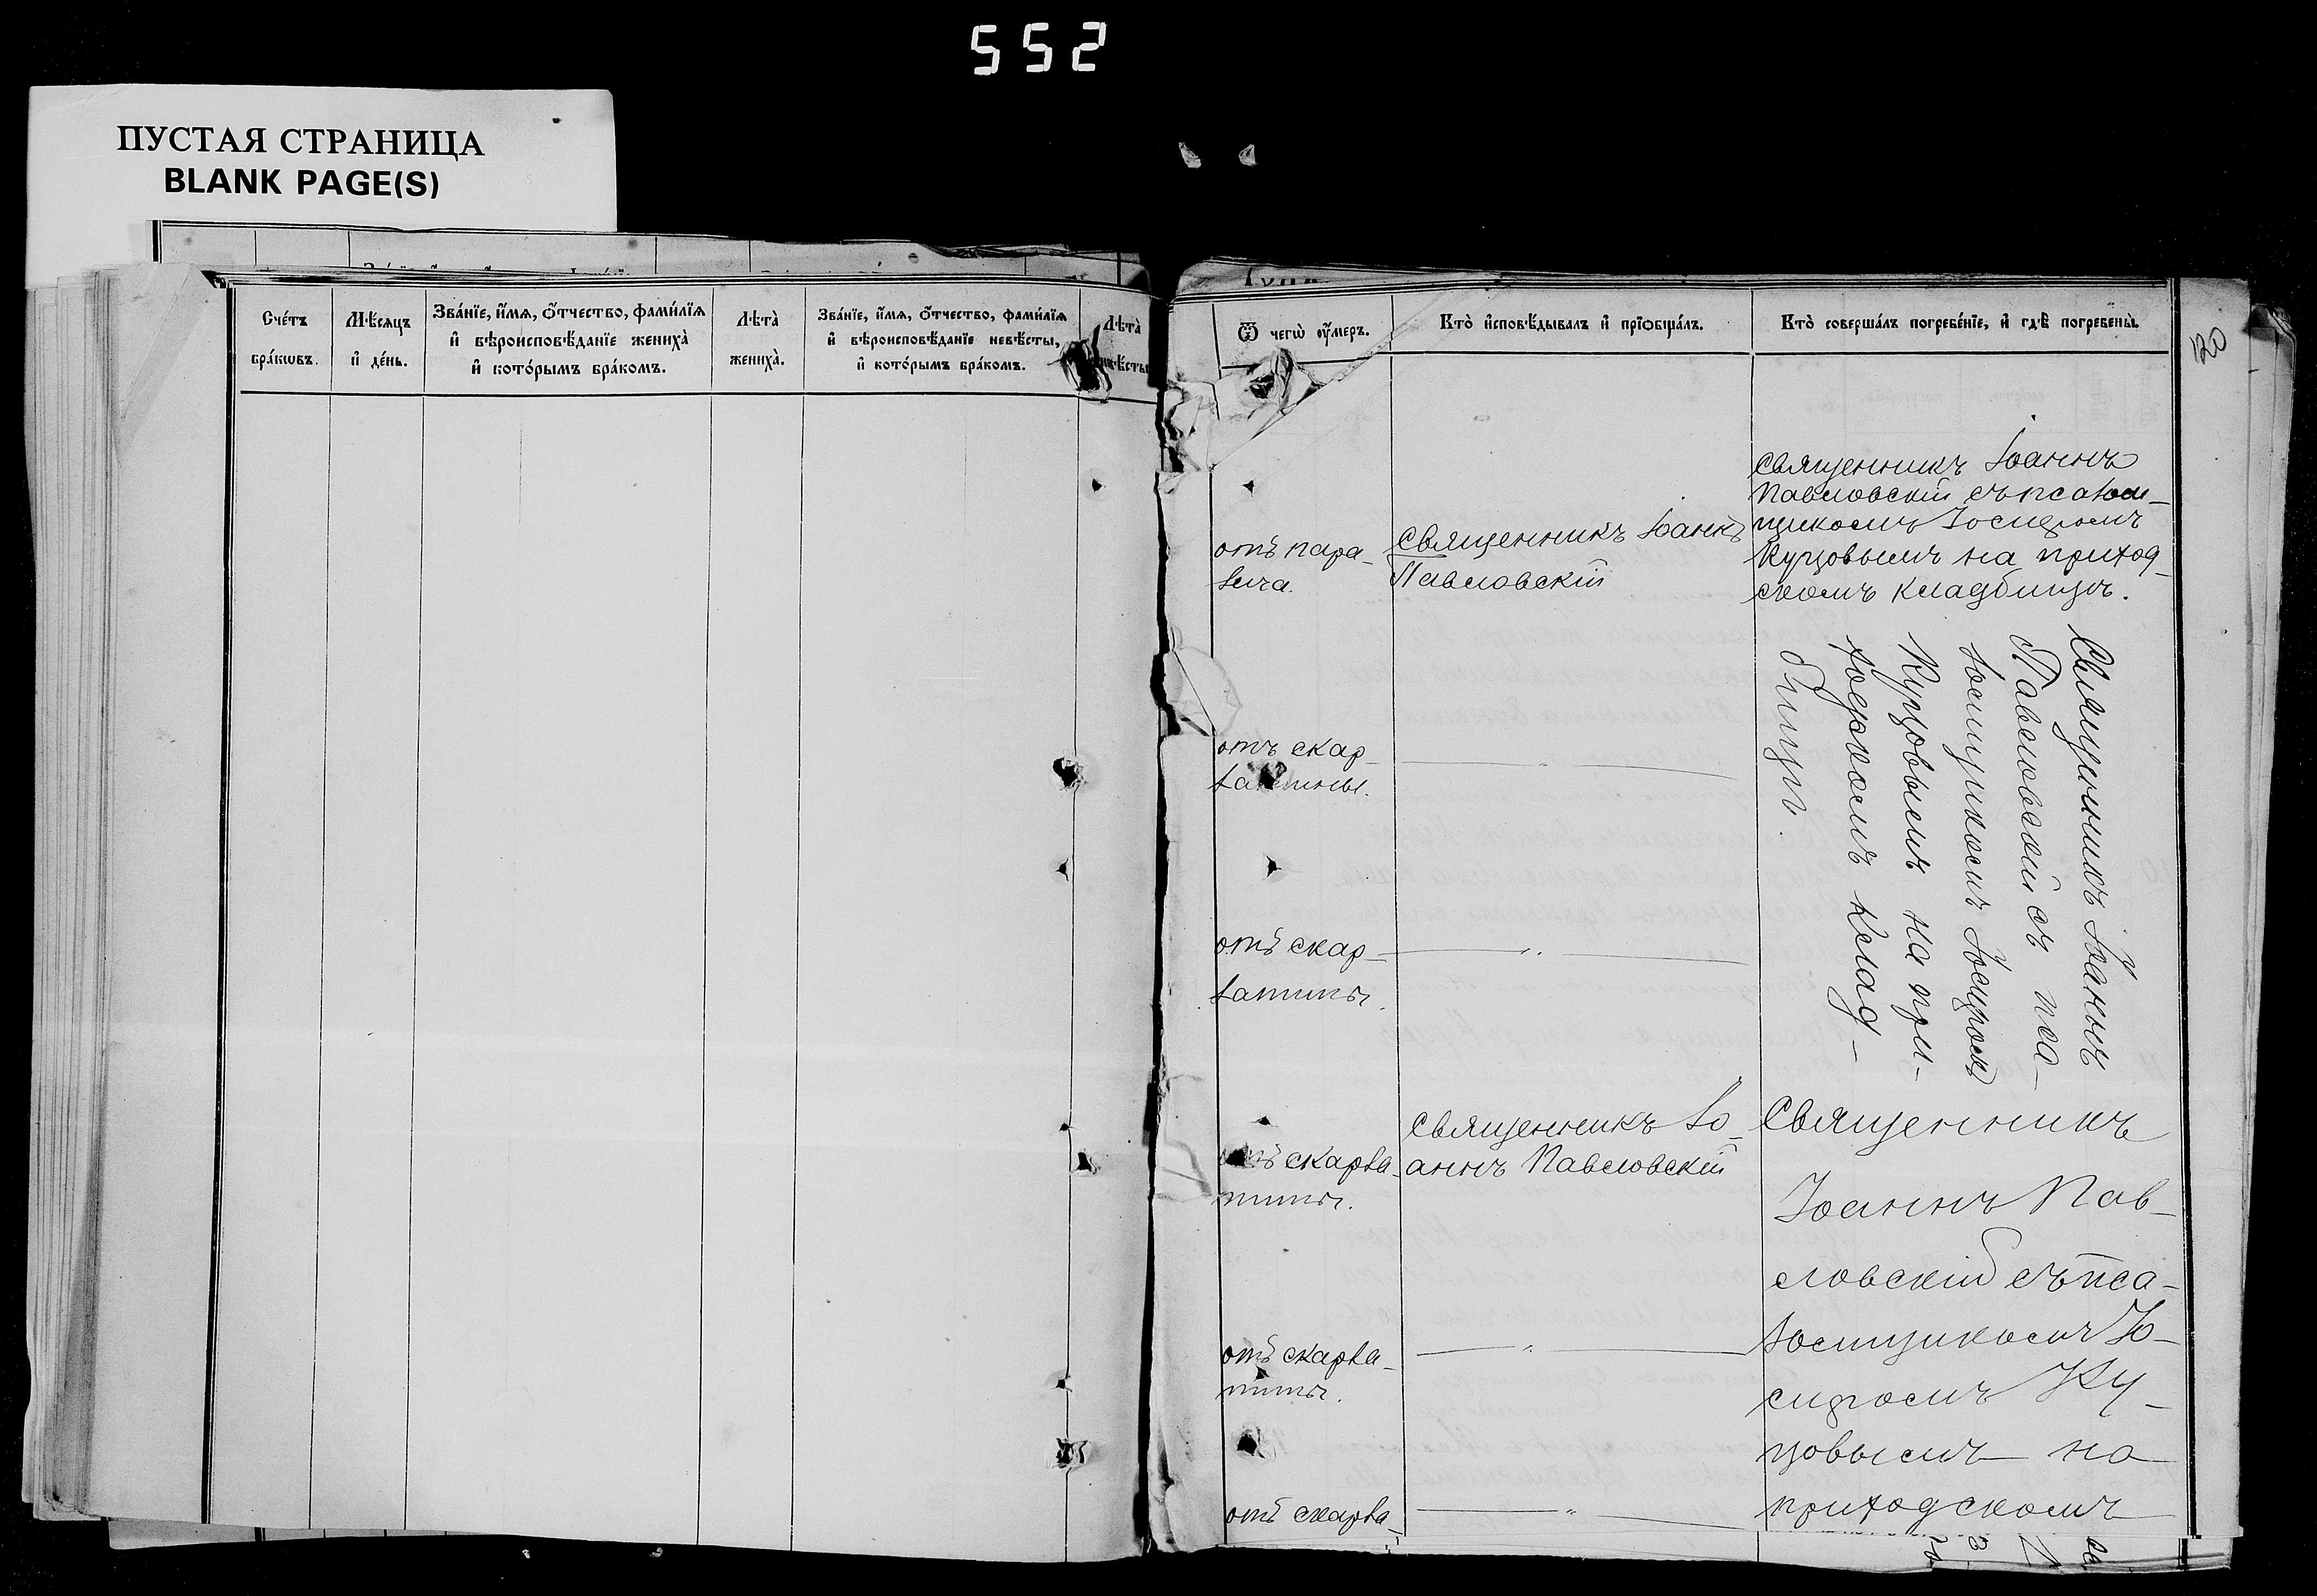 552
ПУСТАЯ СТРАНИЦА
BLANK PAGE(S)
Сче́тъ бра́кѡвъ.
Мѣ́сяцъ и҆ де́нь.
Зва́нїе, и҆́мѧ, ѻ҆́тчество, фами́лїѧ
и҆ вѣроисповѣ́данїе жениха̀
и҆ кото́рымъ бра́комъ.
Лѣта̀ жениха̀.
Зва́нїе, и҆́мѧ, ѻ҆́тчество, фами́лїѧ
и҆ вѣроисповѣ́данїе невѣ́сты,
и҆ кото́рымъ бра́комъ.
Лѣта̀
Ѿ чегѡ̀ ᲂу҆́меръ.
Кто̀ и҆сповѣ́дывалъ и҆ прїѡбща́лъ.
Кто̀ соверша́лъ погребе́нїе, и҆ гдѣ̀ погребены̀.
120
отъ пара-
лича.
Священникъ Іоаннъ
Павловскій
Священникъ Іоаннъ
Павловскій съ псалом-
щикомъ Іосифомъ
Купцовымъ на приход-
скомъ кладбищѣ.
отъ скар-
латины.
Священникъ Іоаннъ
Павловскій съ пса-
ломщикомъ Іосифомъ
Купцовымъ на при-
ходскомъ клад-
бищѣ.
отъ скар-
латины.
отъ скарла-
тины.
Священникъ Іо-
аннъ Павловскій
Священникъ
Іоаннъ Пав-
ловскій съ пса-
ломщикомъ Іо-
сифомъ Ку-
пцовымъ на
приходскомъ
отъ скарла-
тины.
отъ скарла-